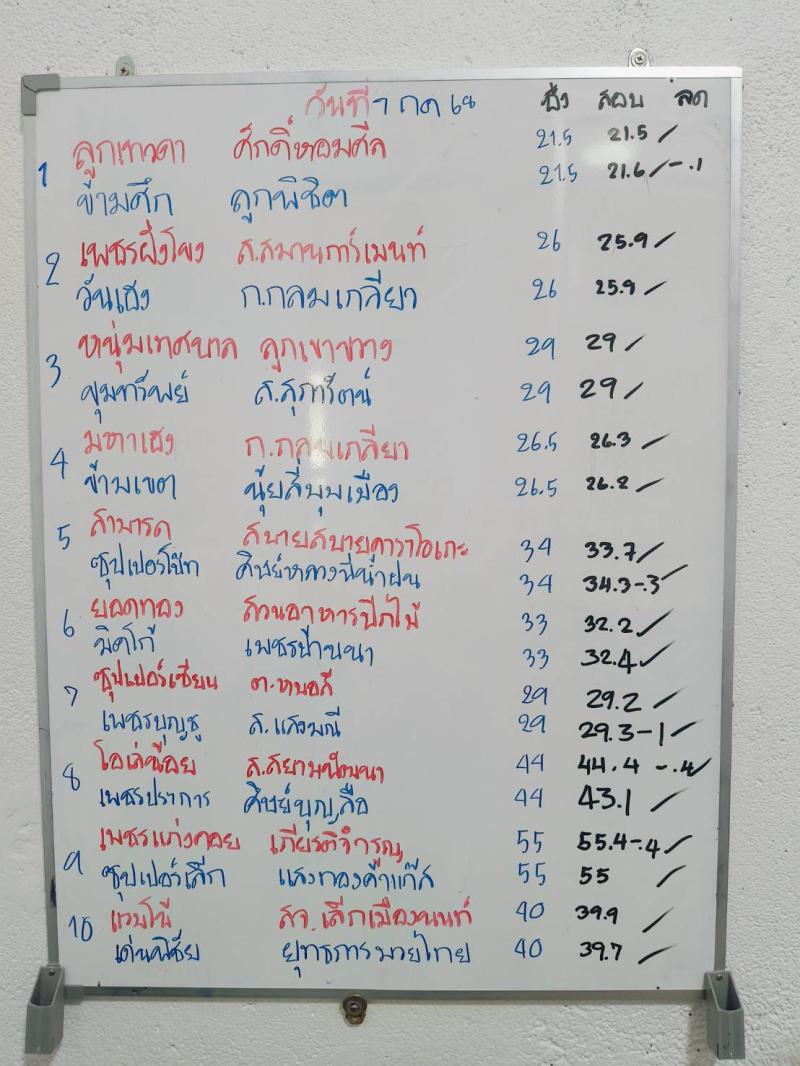 วันที่ ๆ กค 68 ชั่ง สอบ ลด
1 ลูกเทวดา ศักดิ์หอมศีล 21.5 21.5 /
ข้ามศึก ลูกพิชิต 21.5 21.6 / -.1
2 เพชรฝั่งโขง ส.สมานการ์เมนท์ 26 25.9 /
วันเฮง ก.กลมเกลียว 26 25.9 /
3 หนุ่มเทศบาล ลูกเขาขวาง 29 29 /
ขุมทรัพย์ ส.สุภารัตน์ 29 29 /
4 มหาเฮง ก.กลมเกลียว 26.5 26.3 /
ข้ามเขต นุ้ยสี่มุมเมือง 26.5 26.2 /
5 สามารถ สบายสบายคาราโอเกะ 34 33.7 /
ซุปเปอร์โบ๊ท ศิษย์หลวงพี่น้ำฝน 34 34.3 -.3 /
6 ยอดทอง สวนอาหารปีกไม้ 33 32.2 /
มิคโก้ เพชรป่านนา 33 32.4 /
7 ซุปเปอร์เซียน ต.หมอลี 29 29.2 /
เพชรบุญชู ส.แสงมณี 29 29.3 -1 /
8 โอเล่น้อย ส.สยามพัฒนา 44 44.4 -.4 /
เพชรปราการ ศิษย์บุญลือ 44 43.1 /
9 เพชรแก่งคอย เกียรติจำรูญ 55 55.4 -.4 /
ซุปเปอร์เล็ก แสงทองค้าแก๊ส 55 55 /
10 แวมโน้ สจ.เล็กเมืองนนท์ 40 39.9 /
เด่นพิชัย ยุทธการมวยไทย 40 39.7 /